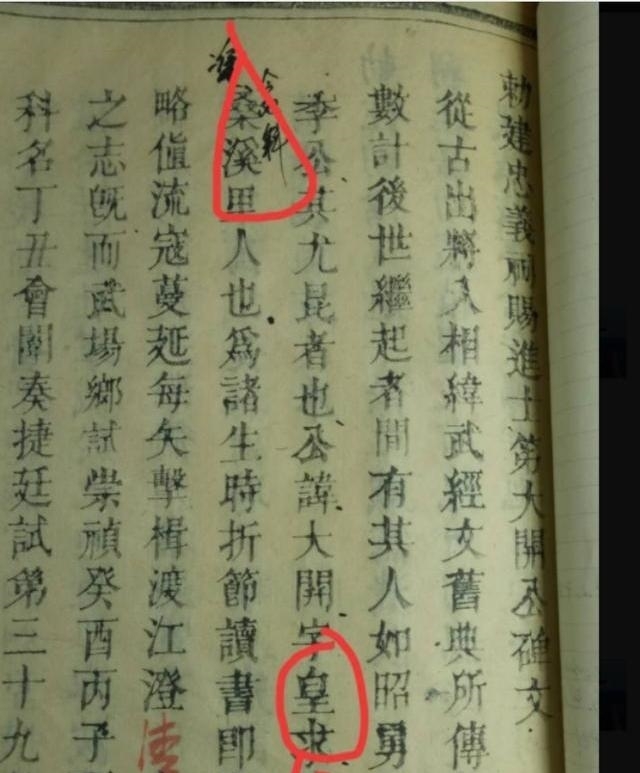 勅建忠義祠賜進士第大開公碑文
從古出將入相緯武經文舊典所傳
數計後世繼起者間有其人如昭勇
季公其尤昆者也公諱大開字皇求
桑溪里人也爲諸生時折節讀書即
略值流寇蔓延每矢擊楫渡江澄
之志旣而武塲鄉試崇禎癸酉丙子
科名丁丑會闈奏捷廷試第三十九